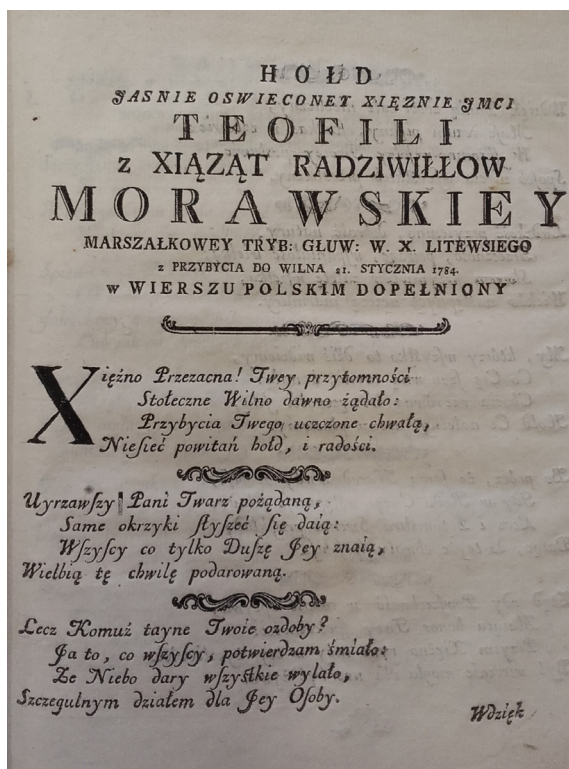 HOŁD
JASNIE OSWIECONEY XIĘZNIE JMCI
TEOFILI
z XIĄZĄT RADZIWIŁŁOW
MORAWSKIEY
MARSZAŁKOWEY TRYB: GŁUW: W. X. LITEWSIEGO
z PRZYBYCIA DO WILNA 21. STYCZNIA 1784.
w WIERSZU POLSKIM DOPEŁNIONY
Xiężno Przezacna! Twey przytomności
Stołeczne Wilno dawno żądało:
Przybycia Twego uczczone chwałą,
Nieſieć powitań hołd, i radości.
Uyrzawſzy Pani Twarz pożądaną,
Same okrzyki ſłyſzeć ſię daią:
Wſzyſcy co tylko Duſzę Jey znaią,
Wielbią tę chwilę podarowaną.
Lecz Komuż tayne Twoie ozdoby?
Ja to, co wſzyſcy, potwierdzam śmiało:
Że Niebo dary wſzyſtkie wylało,
Szczegulnym działem dla Jey Oſoby.
Wdzięk